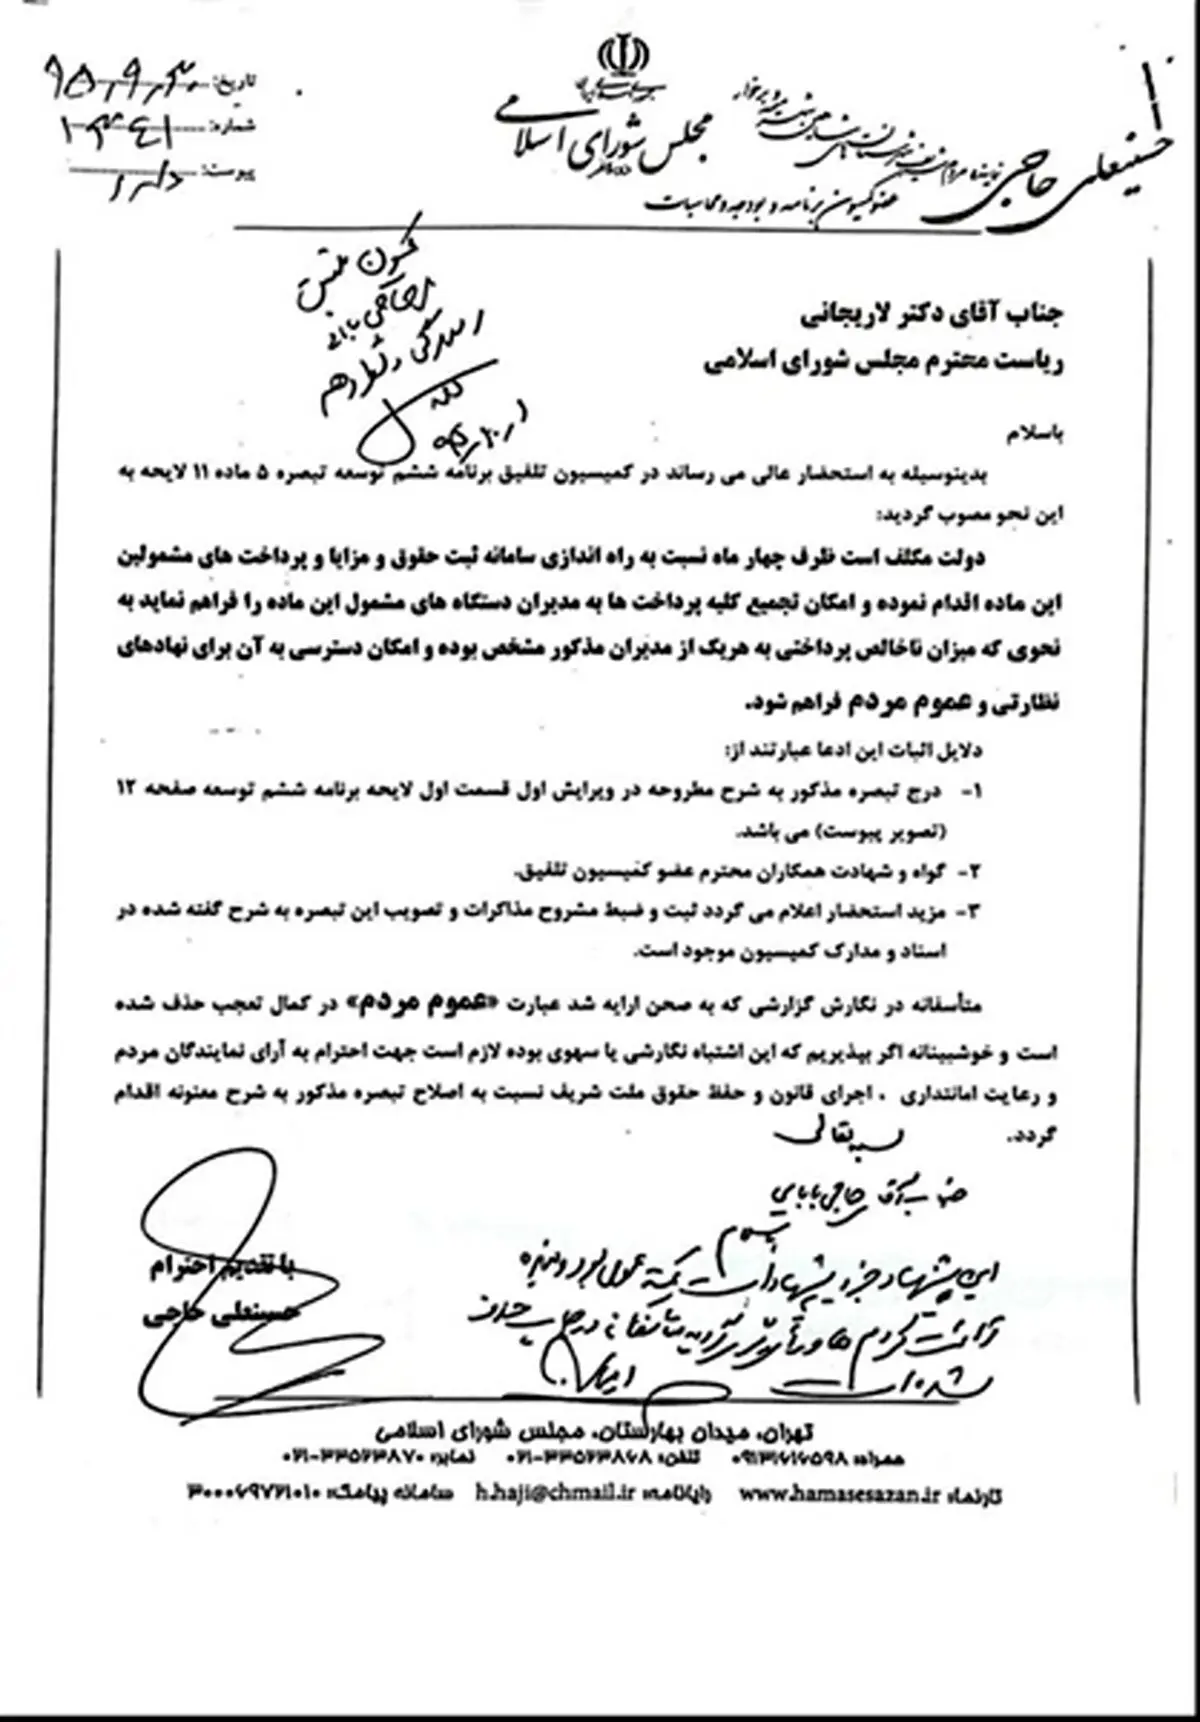 تاریخ: ۹۵،۹،۳۰
شماره: ۱۳۴۶۱
پیوست: دارد
مجلس شورای اسلامی
حسینعلی حاجی
عضو کمیسیون برنامه و بودجه و محاسبات
جناب آقای دکتر لاریجانی
ریاست محترم مجلس شورای اسلامی
باسلام
بدینوسیله به استحضار عالی می رساند در کمیسیون تلفیق برنامه ششم توسعه تبصره ۵ ماده ۱۱ لایحه به
این نحو مصوب گردید:
دولت مکلف است ظرف چهار ماه نسبت به راه اندازی سامانه ثبت حقوق و مزایا و پرداخت های مشمولین
این ماده اقدام نموده و امکان تجمیع کلیه پرداخت ها به مدیران دستگاه های مشمول این ماده را فراهم نماید به
نحوی که میزان ناخالص پرداختی به هریک از مدیران مذکور مشخص بوده و امکان دسترسی به آن برای نهادهای
نظارتی و عموم مردم فراهم شود.
دلایل اثبات این ادعا عبارتند از:
۱- درج تبصره مذکور به شرح مطروحه در ویرایش اول قسمت اول لایحه برنامه ششم توسعه صفحه ۱۲
(تصویر پیوست) می باشد.
۲- گواه و شهادت همکاران محترم عضو کمیسیون تلفیق.
۳- مزید استحضار اعلام می گردد ثبت و ضبط مشروح مذاکرات و تصویب این تبصره به شرح گفته شده در
اسناد و مدارک کمیسیون موجود است.
متأسفانه در نگارش گزارشی که به صحن ارایه شد عبارت «عموم مردم» در کمال تعجب حذف شده
است و خوشبینانه اگر بپذیریم که این اشتباه نگارشی یا سهوی بوده لازم است جهت احترام به آرای نمایندگان مردم
و رعایت امانتداری ، اجرای قانون و حفظ حقوق ملت شریف نسبت به اصلاح تبصره مذکور به شرح معنونه اقدام
گردد.
بسمه تعالی
جناب آقای حاجی بابایی
این پیشنهاد جزو پیشنهادات کمیته
شده است
با تقدیم احترام
حسینعلی حاجی
تهران، میدان بهارستان، مجلس شورای اسلامی
همراه: ۰۹۱۳۱۶۱۶۵۹۸ تلفن: ۳۳۵۶۳۸۶۸-۰۲۱ نمابر: ۳۳۵۶۳۸۷۰-۰۲۱
تارنما: www.hamasesazan.ir رایانامه: h.haji@chmail.ir سامانه پیامک: ۳۰۰۰۶۹۷۲۱۰۱۰